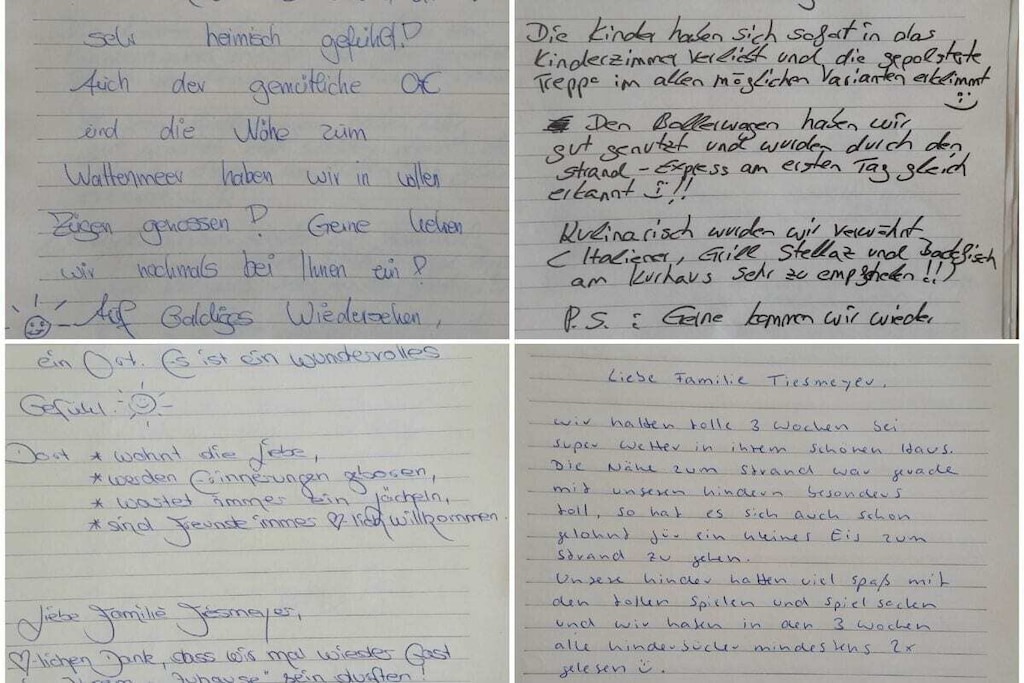 sehr heimisch gefühlt!
Auch der gemütliche Ort
und die Nähe zum
Wattenmeer haben wir in vollen
Zügen genossen! Gerne kehren
wir nochmals bei Ihnen ein!
Auf Baldiges Wiedersehen,
Die Kinder haben sich sofort in das
Kinderzimmer verliebt und die gepolsterte
Treppe im allen möglichen Varianten erklimmt
Den Bollerwagen haben wir
gut genutzt und wurden durch den
Strand-Express am ersten Tag gleich
erkannt !!
Kulinarisch wurden wir verwöhnt
(Italiener, Grill Stellaz und Backfisch
am Kurhaus sehr zu empfehlen!!)
P.S.: Gerne kommen wir wieder
ein Ort. Es ist ein wundervolles
Gefühl.
Dort * wohnt die Liebe,
* werden Erinnerungen geboren,
* wartet immer ein Lächeln,
* sind Freunde immer ♡lich willkommen.
Liebe Familie Tiesmeyer,
♡-lichen Dank, dass wir mal wieder Gast
"zuhause" sein durften!
Liebe Familie Tiesmeyer,
wir hatten tolle 3 Wochen bei
super Wetter in ihrem schönen Haus.
Die Nähe zum Strand war gerade
mit unseren Kindern besonders
toll, so hat es sich auch schon
gelohnt für ein kleines Eis zum
Strand zu gehen.
Unsere Kinder hatten viel Spaß mit
den tollen Spielen und Spielsachen
und wir haben in den 3 Wochen
alle Kinderbücher mindestens 2x
gelesen ☺.